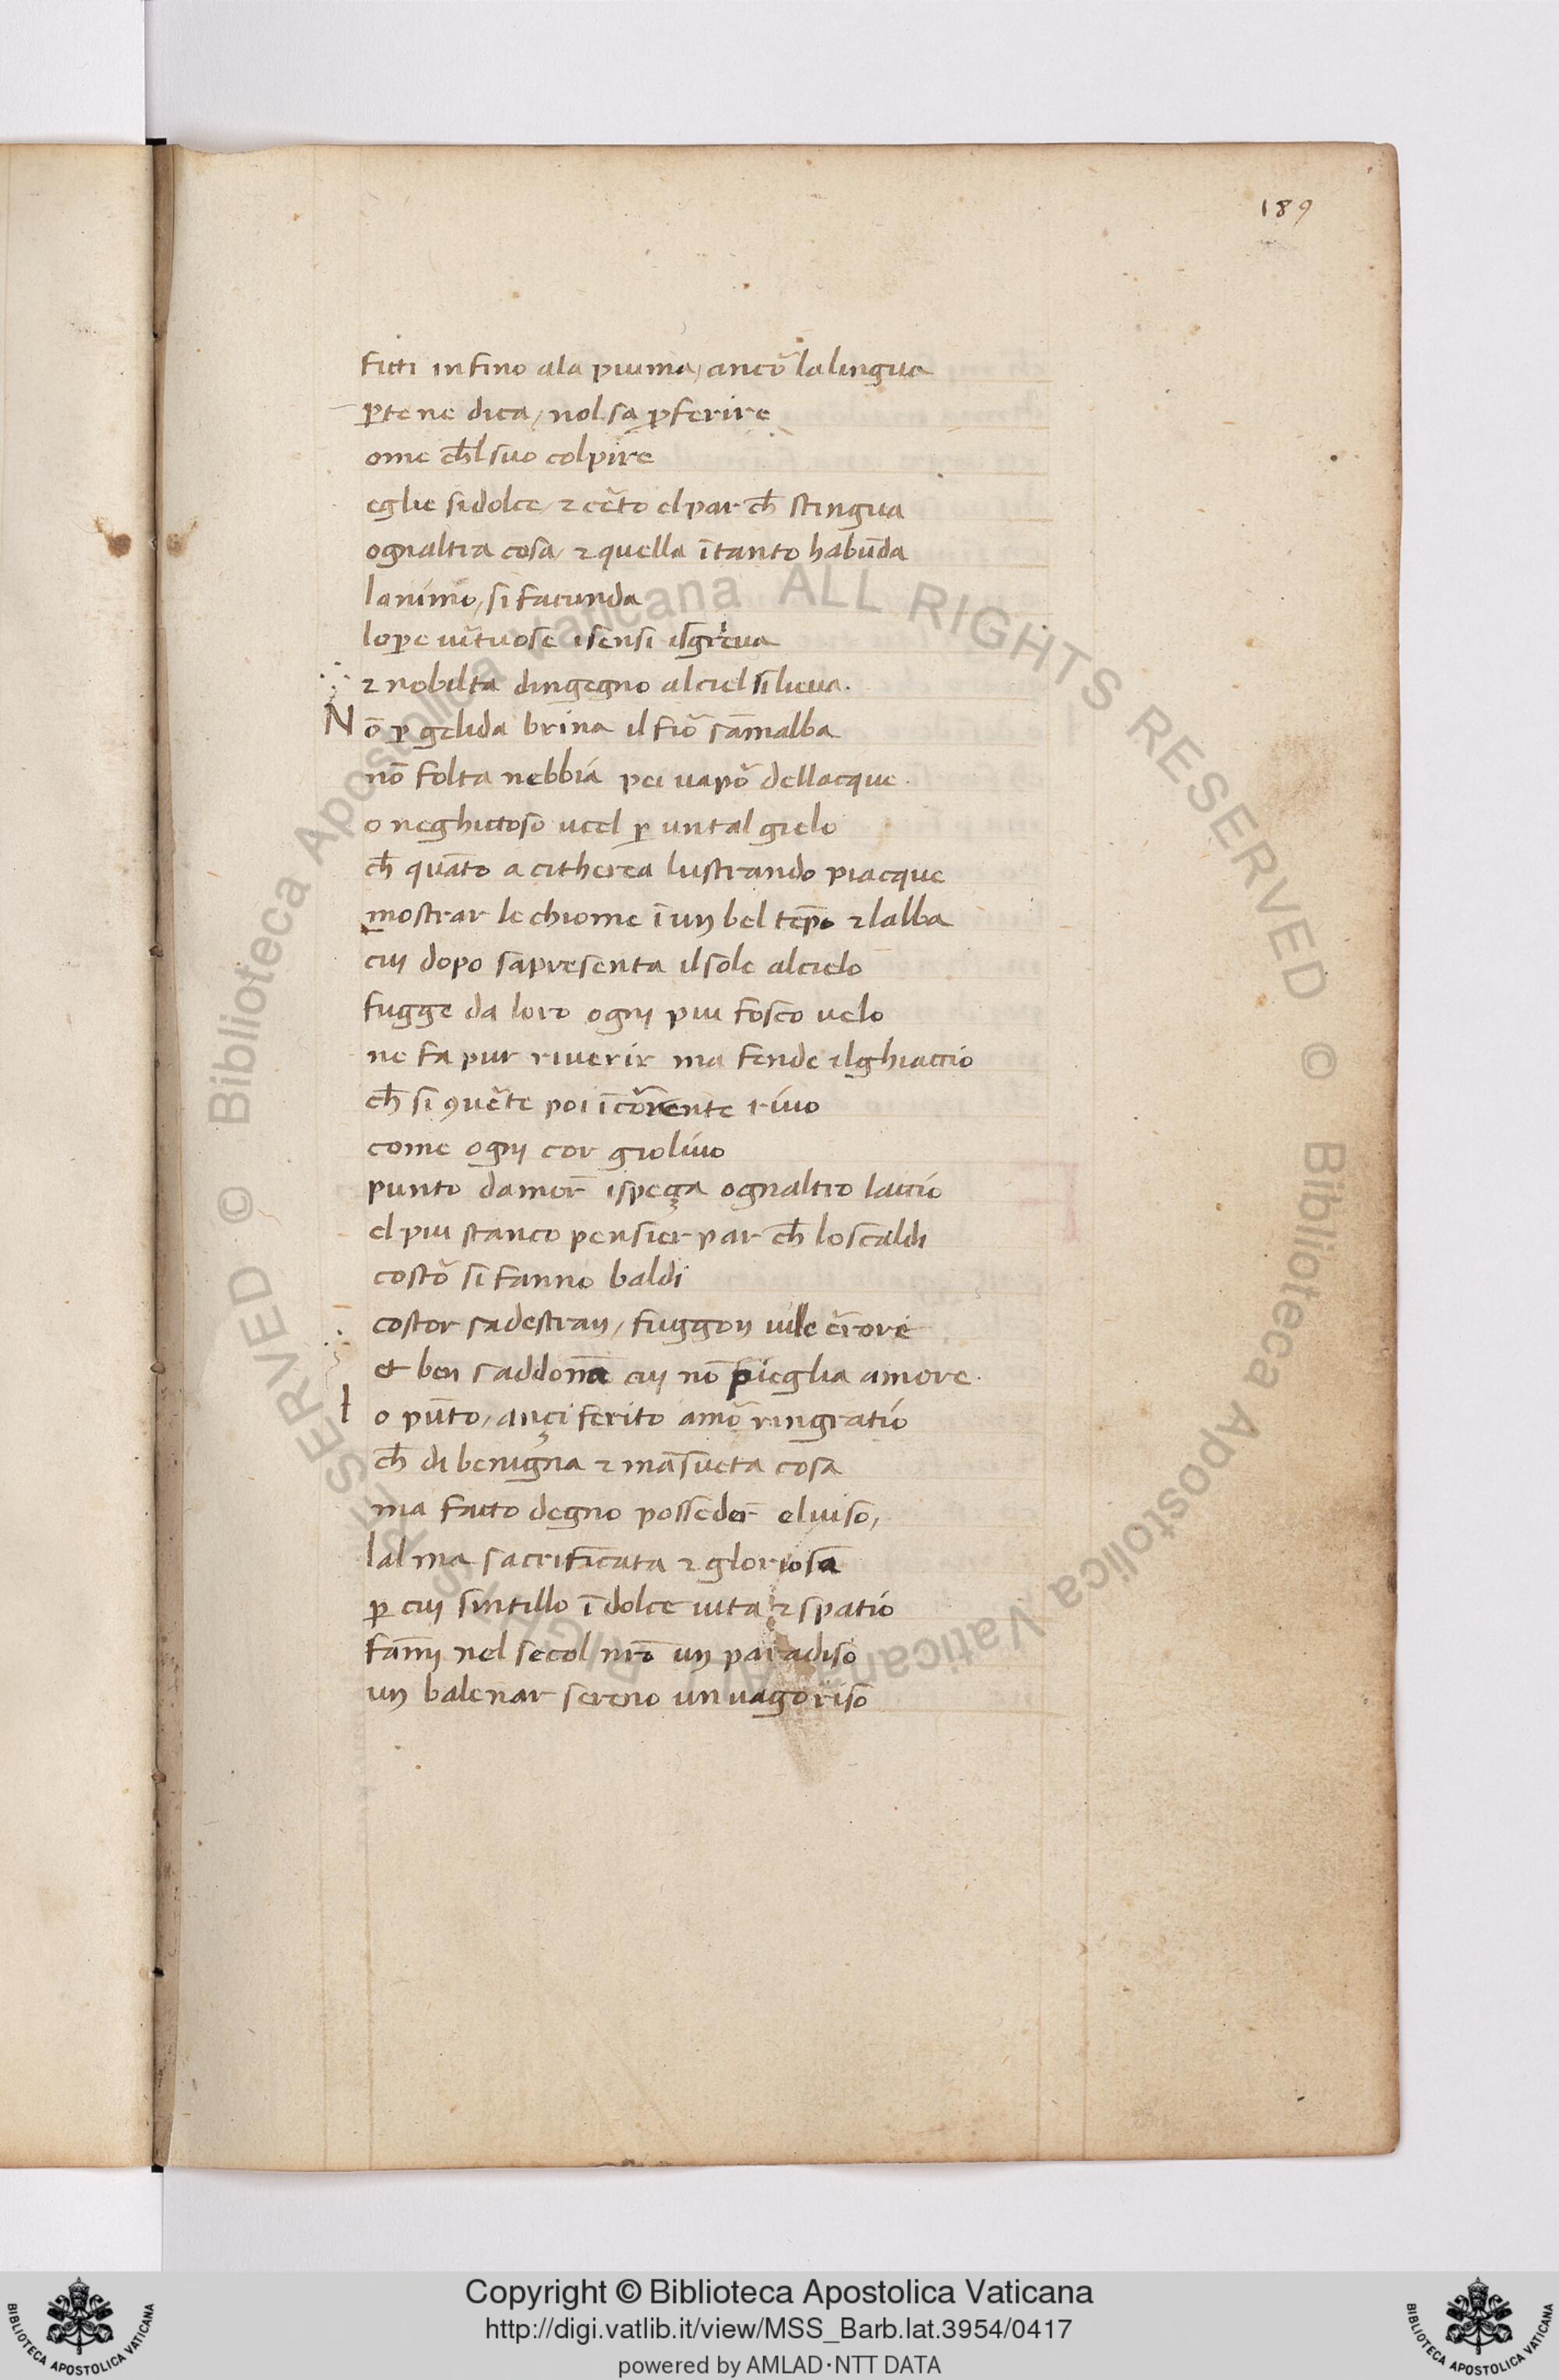 189
fitti infino ala piuma, ancō la lingua
ꝑte ne dica, nol sa ꝓferire
ome ch̄l suo colpire
eglie si dolce, ⁊ cēto el par ch̄ stingua
ognaltra cosa, ⁊ quella ītanto habūda
lanimo, si facunda
loꝑe uītuose isensi
⁊ nobilta dingegno al ciel si lieua.
Nō ꝑ gelida brina il fiō sāmalba
nō folta nebbia pei uapō dellacque.
o neghittoso ucel ꝑ un tal gielo
ch̄ quāto a citherea lustrando piacque
mostrar le chiome ī un bel tēpo ⁊ lalba
cui dopo sapresenta il sole al cielo
fugge da loro ogni piu fosco uelo
ne fa pur riuerir ma fende il ghiaccio
ch̄ si ꝯuēte poi ī cōrente riuo
come ogni cor gioliuo
punto damor̄ ispeça ognaltro laccio
el piu stanco pensier par ch̄ lo scaldi
costō si fanno baldi
costor sadestran, fuggon uile ērore
et ben saddonna cui nō pieglia amore.
Io pūto, ançi ferito amō ringratio
ch̄ di benigna ⁊ māsueta cosa
ma facto degno posseder̄ el uiso,
lalma sacrificata ⁊ gloriosa
ꝑ cui sintillo ī dolce uita ⁊ spatio
fāmi nel secol nr̄o un paradiso
un balenar sereno un uago riso
© Biblioteca Apostolica Vaticana ALL RIGHTS RESERVED © Biblioteca Apostolica Vaticana ALL RIGHTS RESERVED
Copyright © Biblioteca Apostolica Vaticana
http://digi.vatlib.it/view/MSS_Barb.lat.3954/0417
powered by AMLAD·NTT DATA
BIBLIOTECA APOSTOLICA VATICANA
BIBLIOTECA APOSTOLICA VATICANA